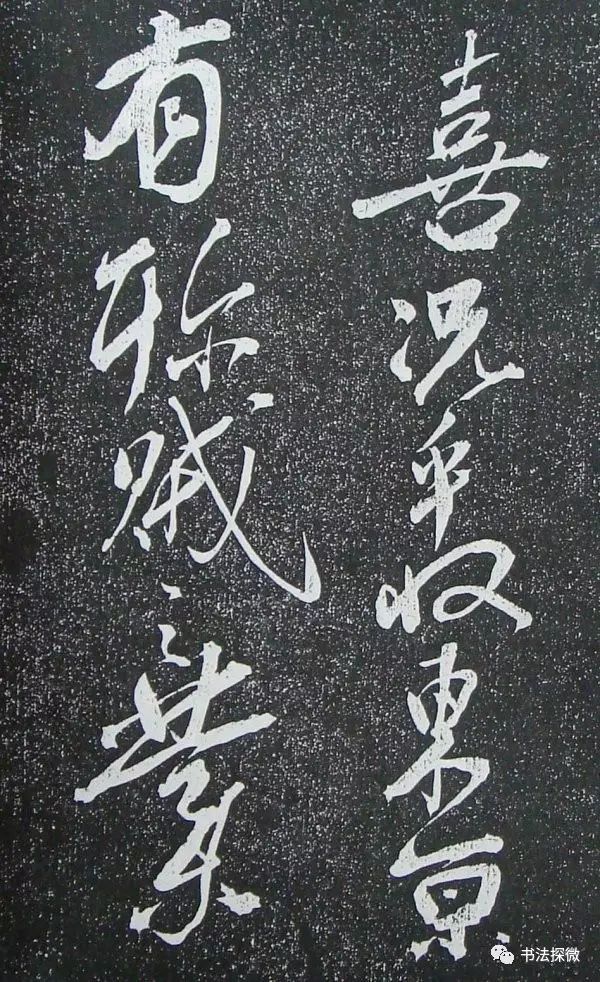 喜况平收東京
有殄賊之業
书法探微